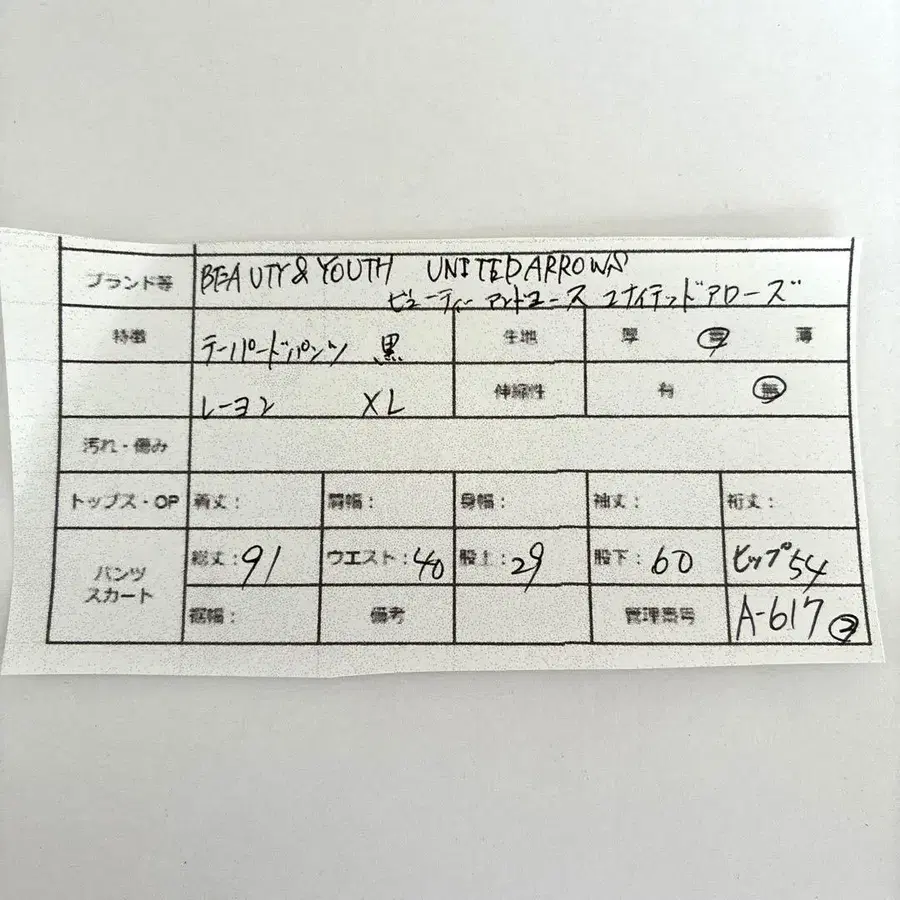 ブランド等 BEAUTY&YOUTH UNITEDARROWS
ビューティーアンドユース ユナイテッドアローズ
特徴 テーパードパンツ 黒 生地 厚 普 薄
レーヨン XL 伸縮性 有 無
汚れ・傷み
トップス・OP 着丈: 肩幅: 身幅: 袖丈: 裄丈:
パンツ スカート 総丈:91 ウエスト:40 股上:29 股下:60 ヒップ54
裾幅: 備考 管理番号 A-617